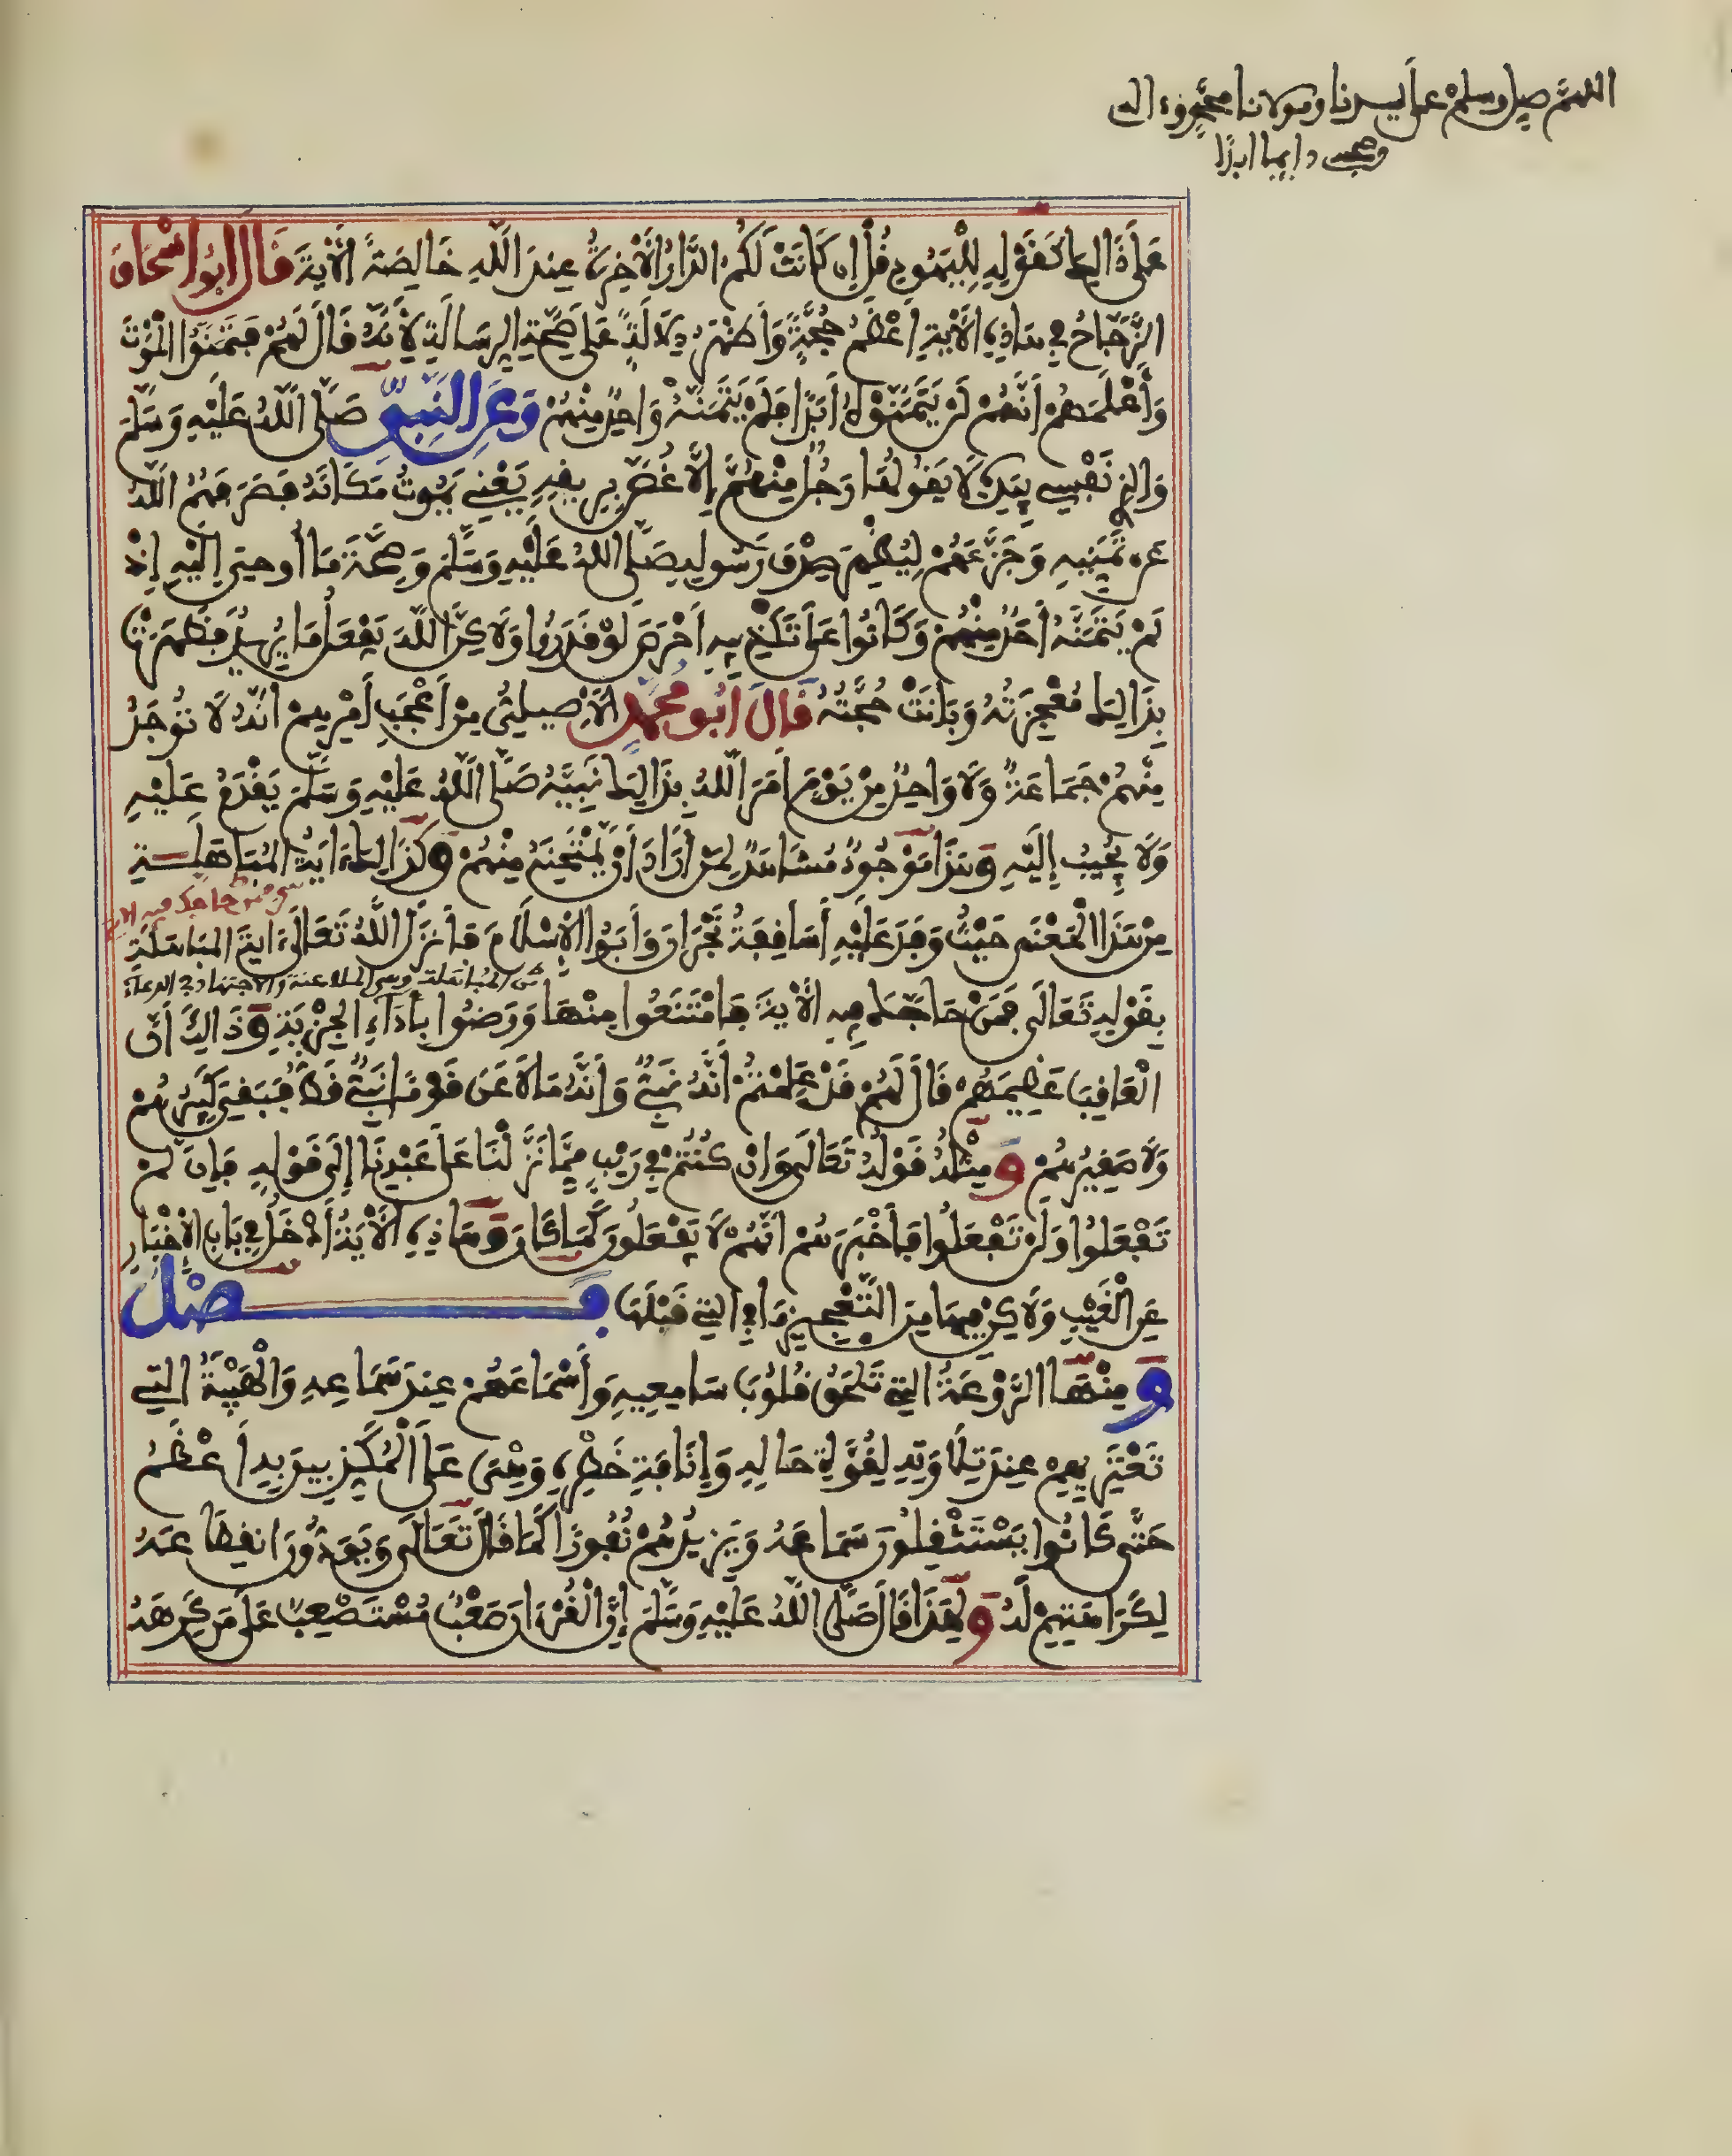 اللهم صل وسلم على سيدنا ومولانا محمد وءاله
وصحبه دايما ابدا
عَلَى ذَالِكَ كَقَوْلِهِ لِلْيَهُودِ قُلْ إِن كَانَتْ لَكُمُ الدَّارُ الْأَخِرَةُ عِندَ اللَّهِ خَالِصَةً الْأَيَةَ قَالَ أَبُو إِسْحَاقَ
الزَّجَّاجُ فِي هَاذِهِ الْأَيَةِ أَعْظَمُ حُجَّةٍ وَأَظْهَرُ دِلَالَةٍ عَلَى صِحَّةِ الرِّسَالَةِ لِأَنَّهُ قَالَ لَهُمْ فَتَمَنَّوُا الْمَوْتَ
وَأَعْلَمَهُمْ أَنَّهُمْ لَنْ يَتَمَنَّوْهُ أَبَدًا فَلَمْ يَتَمَنَّهُ وَاحِدٌ مِنْهُمْ وَعَنِ النَّبِيِّ صَلَّى اللَّهُ عَلَيْهِ وَسَلَّمَ
وَالذِي نَفْسِي بِيَدِهِ لَا يَقُولُهَا رَجُلٌ مِنْهُمْ إِلَّا غُصَّ بِرِيقِهِ يَعْنِي يَمُوتُ مَكَانَهُ فَصَرَفَهُمُ اللَّهُ
عَن تَمَنِّيهِ وَجَزَّعَهُمْ لِيُظْهِرَ صِدْقَ رَسُولِهِ صَلَّى اللَّهُ عَلَيْهِ وَسَلَّمَ وَصِحَّةَ مَا أُوحِيَ إِلَيْهِ إِذْ
لَمْ يَتَمَنَّهُ أَحَدٌ مِنْهُمْ وَكَانُوا عَلَى تَكْذِيبِهِ أَحْرَصَ لَوْ قَدَرُوا وَلَاكِنَّ اللَّهَ يَفْعَلُ مَا يُرِيدُ فَظَهَرَتْ
بِذَالِكَ مُعْجِزَتُهُ وَبَانَتْ حُجَّتُهُ قَالَ أَبُو مُحَمَّدٍ الْأَصِيلِيُّ مِنْ أَعْجَبِ أَمْرِهِمْ أَنَّهُ لَا تُوجَدُ
مِنْهُمْ جَمَاعَةٌ وَلَا وَاحِدٌ مِنْ يَوْمِ أَمَرَ اللَّهُ بِذَالِكَ نَبِيَّهُ صَلَّى اللَّهُ عَلَيْهِ وَسَلَّمَ يَقْدَمُ عَلَيْهِ
وَلَا يُجِيبُ إِلَيْهِ وَهَذَا مَوْجُودٌ مُشَاهَدٌ لِمَنْ أَرَادَ أَنْ يَمْتَحِنَهُ مِنْهُمْ وَكَذَالِكَ ءَايَةُ الْمُبَاهَلَةِ
مِنْ هَذَا الْمَعْنَى حَيْثُ وَفَدَ عَلَيْهِ أَسَاقِفَةُ نَجْرَانَ وَأَبَوُا الْإِسْلَامَ فَأَنزَلَ اللَّهُ تَعَالَى ءَايَةَ الْمُبَاهَلَةِ
هي المباهلة وهي الملاعنة والاجتهاد في الدعاء
بِقَوْلِهِ تَعَالَى فَمَنْ حَاجَّكَ فِيهِ الْأَيَةَ فَامْتَنَعُوا مِنْهَا وَرَضُوا بِأَدَاءِ الْجِزْيَةِ وَذَالِكَ أَنَّ
الْعَاقِبَ عَظِيمَهُمْ قَالَ لَهُمْ قَدْ عَلِمْتُمْ أَنَّهُ نَبِيٌّ وَأَنَّهُ مَا لَاعَنَ قَوْمًا نَبِيٌّ قَطُّ فَبَقِيَ كَبِيرُهُمْ
وَلَا صَغِيرُهُمْ وَمِثْلُهُ قَوْلُهُ تَعَالَى وَإِنْ كُنْتُمْ فِي رَيْبٍ مِمَّا نَزَّلْنَا عَلَى عَبْدِنَا إِلَى قَوْلِهِ فَإِن لَمْ
تَفْعَلُوا وَلَنْ تَفْعَلُوا فَأَخْبَرَهُمْ أَنَّهُمْ لَا يَفْعَلُونَ كَمَا كَانَ وَهَاذِهِ الْأَيَةُ أَدْخَلُ فِي بَابِ الْإِخْبَارِ
عَنِ الْغَيْبِ وَلَاكِنْ فِيهَا مِنَ التَّعْجِيزِ مَا فِي التِي قَبْلَهَا فَصْلٌ
وَمِنْهَا الرَّوْعَةُ التِي تَلْحَقُ قُلُوبَ سَامِعِيهِ وَأَسْمَاعَهُمْ عِندَ سَمَاعِهِ وَالْهَيْبَةُ التِي
تَعْتَرِيهِمْ عِندَ تِلَاوَتِهِ لِقُوَّةِ حَالِهِ وَإِنَافَةِ خَطَرِهِ وَهِيَ عَلَى الْمُكَذِّبِينَ بِهِ أَعْظَمُ
حَتَّى كَانُوا يَسْتَثْقِلُونَ سَمَاعَهُ وَيَزِيدُهُمْ نُفُورًا كَمَا قَالَ تَعَالَى وَيَوَدُّونَ انقِطَاعَهُ
لِكَرَاهَتِهِمْ لَهُ وَلِهَذَا قَالَ صَلَّى اللَّهُ عَلَيْهِ وَسَلَّمَ إِنَّ الْقُرْءَانَ صَعْبٌ مُسْتَصْعَبٌ عَلَى مَن كَرِهَهُ